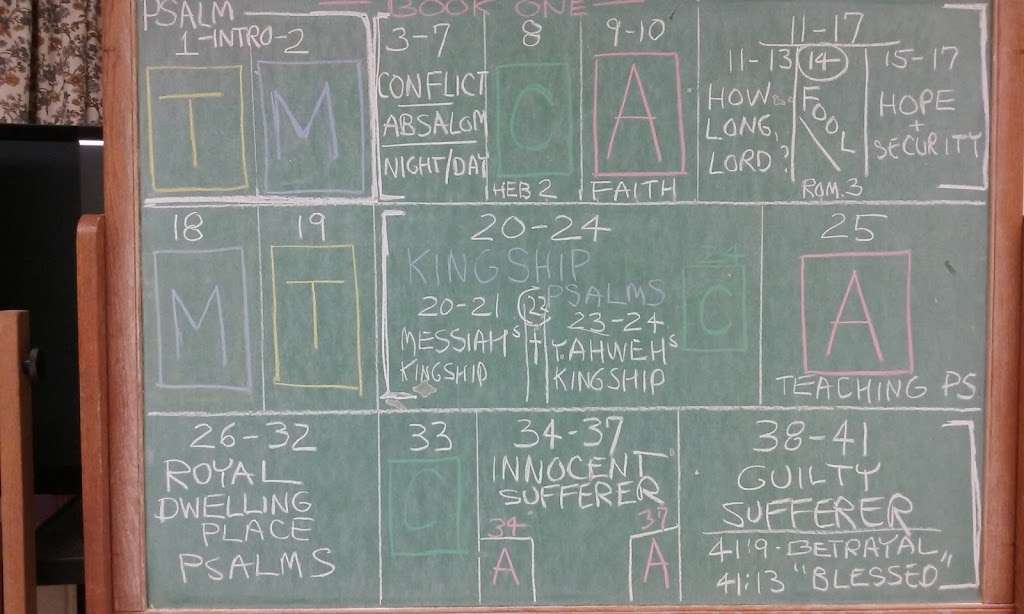 PSALM
BOOK ONE
1-INTRO-2
T
M
3-7
CONFLICT
ABSALOM
NIGHT/DAY
8
C
HEB 2
9-10
A
FAITH
11-17
11-13
HOW
LONG,
LORD?
14
FOOL
ROM. 3
15-17
HOPE
+
SECURITY
18
M
19
T
20-24
KINGSHIP
PSALMS
20-21
MESSIAH'S
KINGSHIP
23-24
YAHWEH'S
KINGSHIP
24
C
25
A
TEACHING PS
26-32
ROYAL
DWELLING
PLACE
PSALMS
33
C
34-37
INNOCENT
SUFFERER
34
A
37
A
38-41
GUILTY
SUFFERER
41:9-BETRAYAL
41:13 "BLESSED"